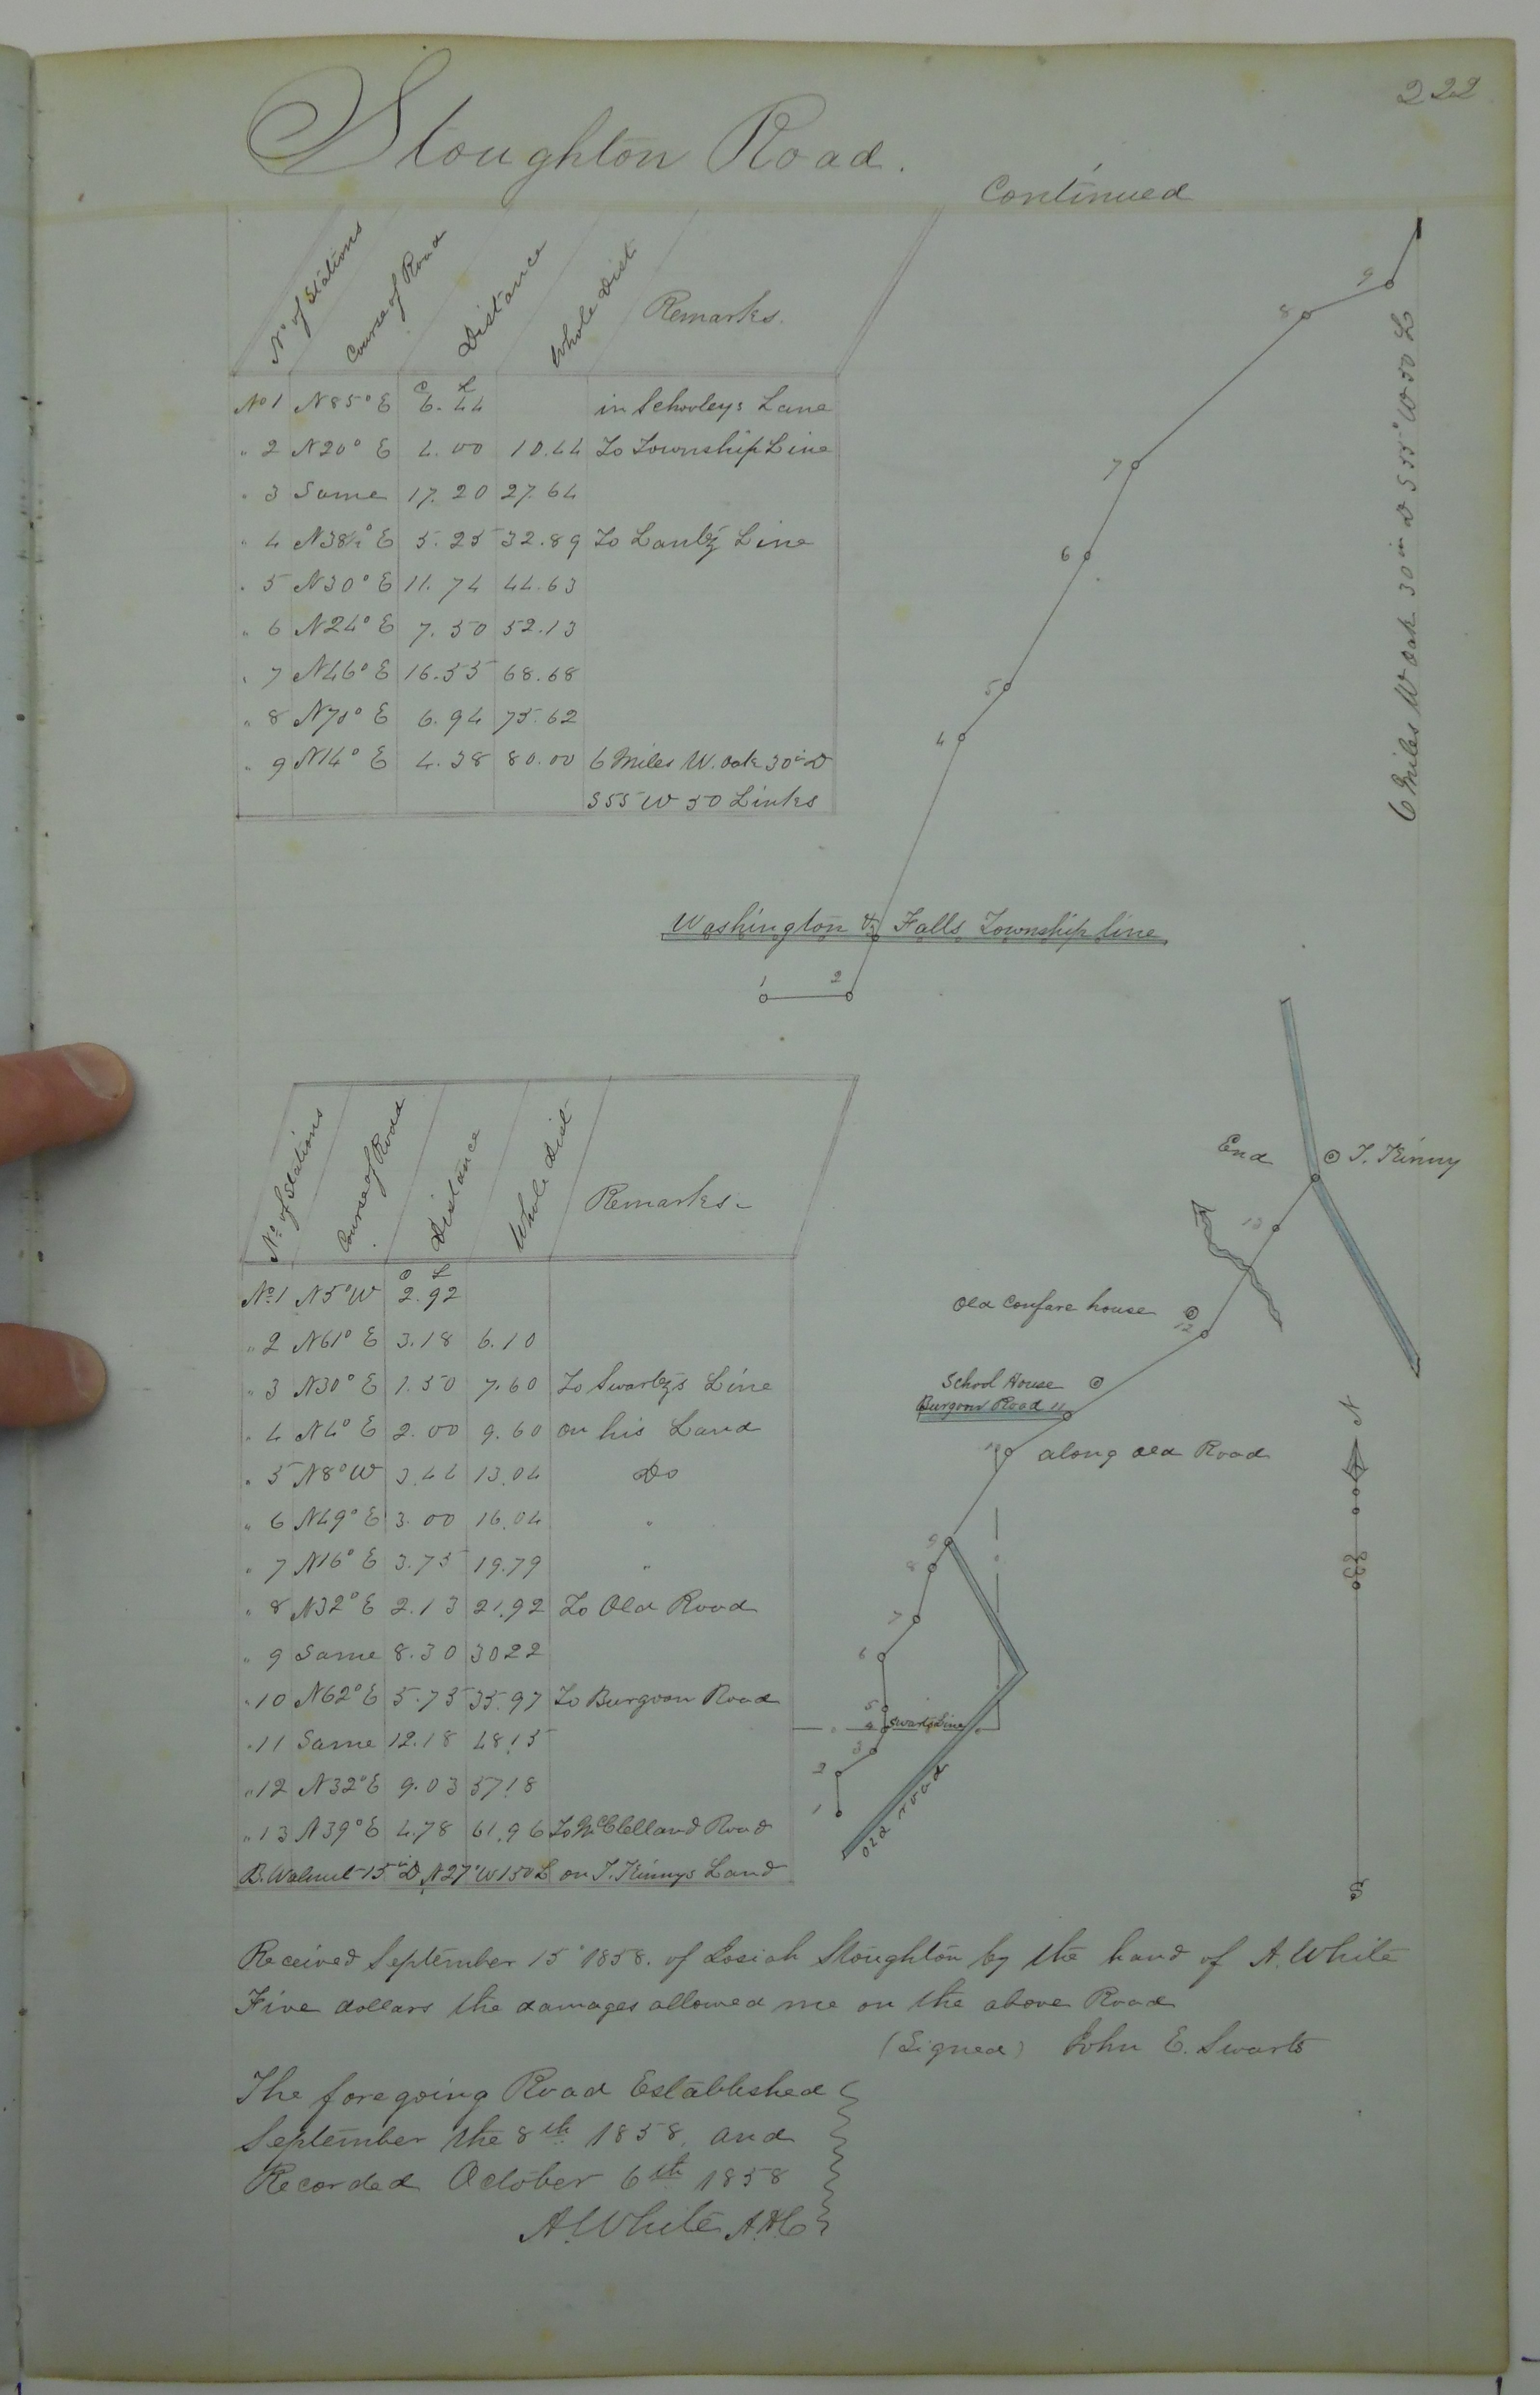 222
Stoughton Road.
Continued
No of Stations Course of Road Distance Whole Dist. Remarks.
C L
No 1 N85° E 6.44 in Schooleys Lane
" 2 N20° E 4.00 10.44 To Township Line
" 3 Same 17.20 27.64
" 4 N38½° E 5.25 32.89 To Line
" 5 N30° E 11.74 44.63
" 6 N24° E 7.50 52.13
" 7 N46° E 16.55 68.68
" 8 N70° E 6.94 75.62
" 9 N14° E 4.38 80.00 6 Miles W. Oak 30 in D
S55 W 50 Links
9
8
7
6
5
4
6 Miles W Oak 30 in D S 55° W 50 L
Washington & Falls Township line
1 2
No of Stations Course of Road Distance Whole Dist Remarks.
C L
No. 1 N5°W 2.92
" 2 N61° E 3.18 6.10
" 3 N30° E 1.50 7.60 To Swartz's Line
" 4 N4° E 2.00 9.60 on his Land
" 5 N8°W 3.44 13.04 Do
" 6 N49° E 3.00 16.04 "
" 7 N16° E 3.75 19.79 "
" 8 N32° E 2.13 21.92 To Old Road
" 9 Same 8.30 3022
" 10 N62° E 5.75 35.97 To Burgoon Road
" 11 Same 12.18 48.15
" 12 N32° E 9.03 57.18
" 13 N39° E 4.78 61.96 To McClelland Road
B. Walnut 15 in D N27°W 150 L on T. Kinnys Land
End T. Kinny
13
Old Confare house
12
School House
Burgoon Road 11
10 along old Road
N
9
8
7
6
5
4 Swarts Line
3
2
1
Old road
S
Received September 15" 1858. of Josiah Stoughton by the hand of A. White
Five dollars the damages allowed me on the above Road
(Signed) John E. Swarts
The foregoing Road Established
September the 8th 1858, and
Recorded October 6th 1858
A. White